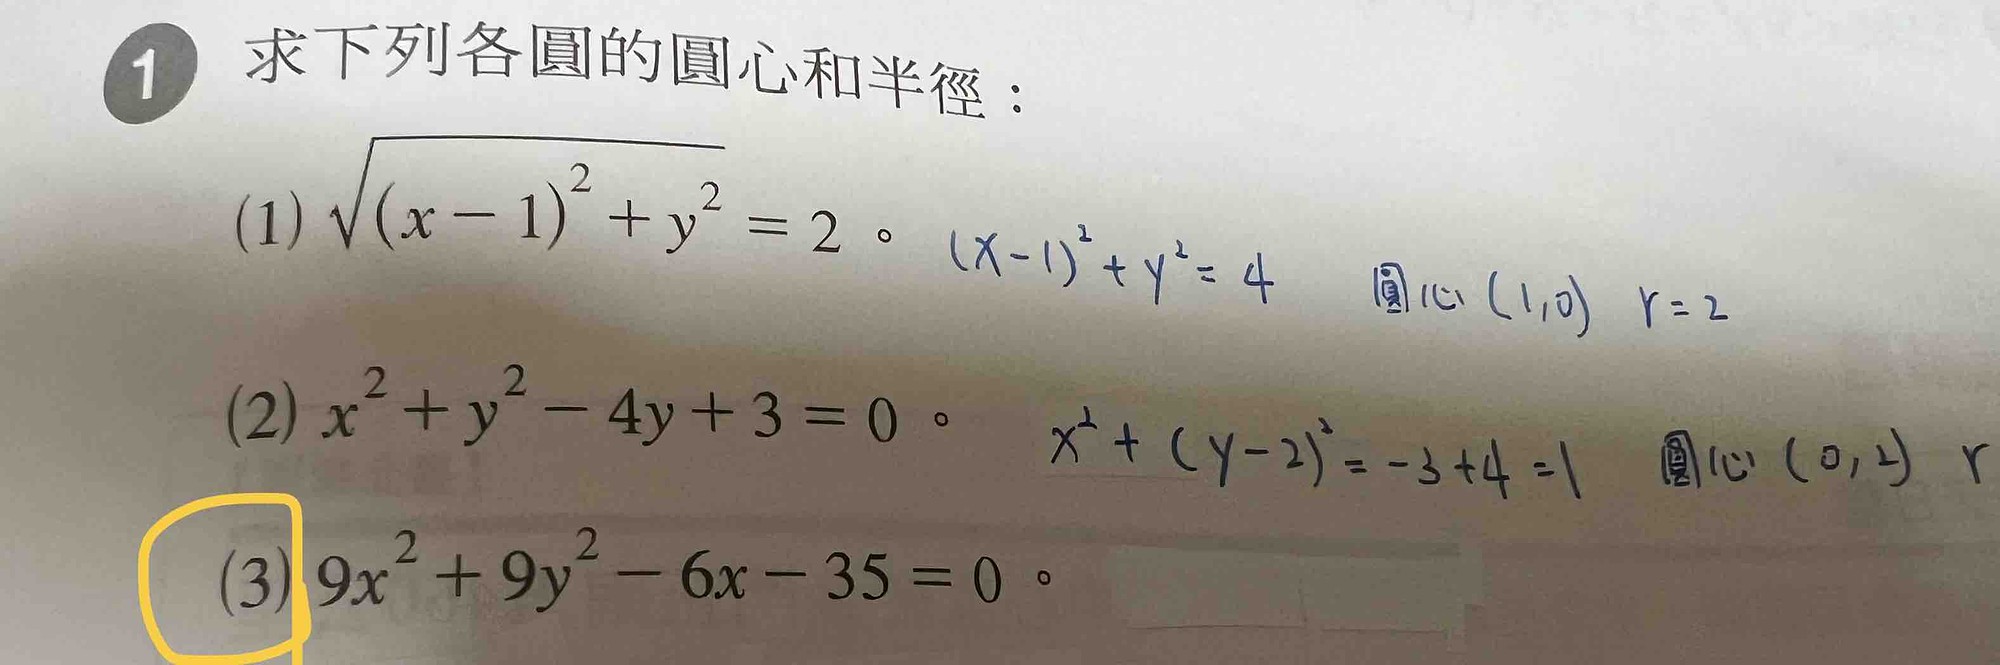 1 求下列各圓的圓心和半徑：
(1) √((x－1)²＋y²)＝2。 (x-1)²+y²=4 圓心(1,0) r=2
(2) x²＋y²－4y＋3＝0。 x²+(y-2)²=-3+4=1 圓心(0,2) r
(3) 9x²＋9y²－6x－35＝0。